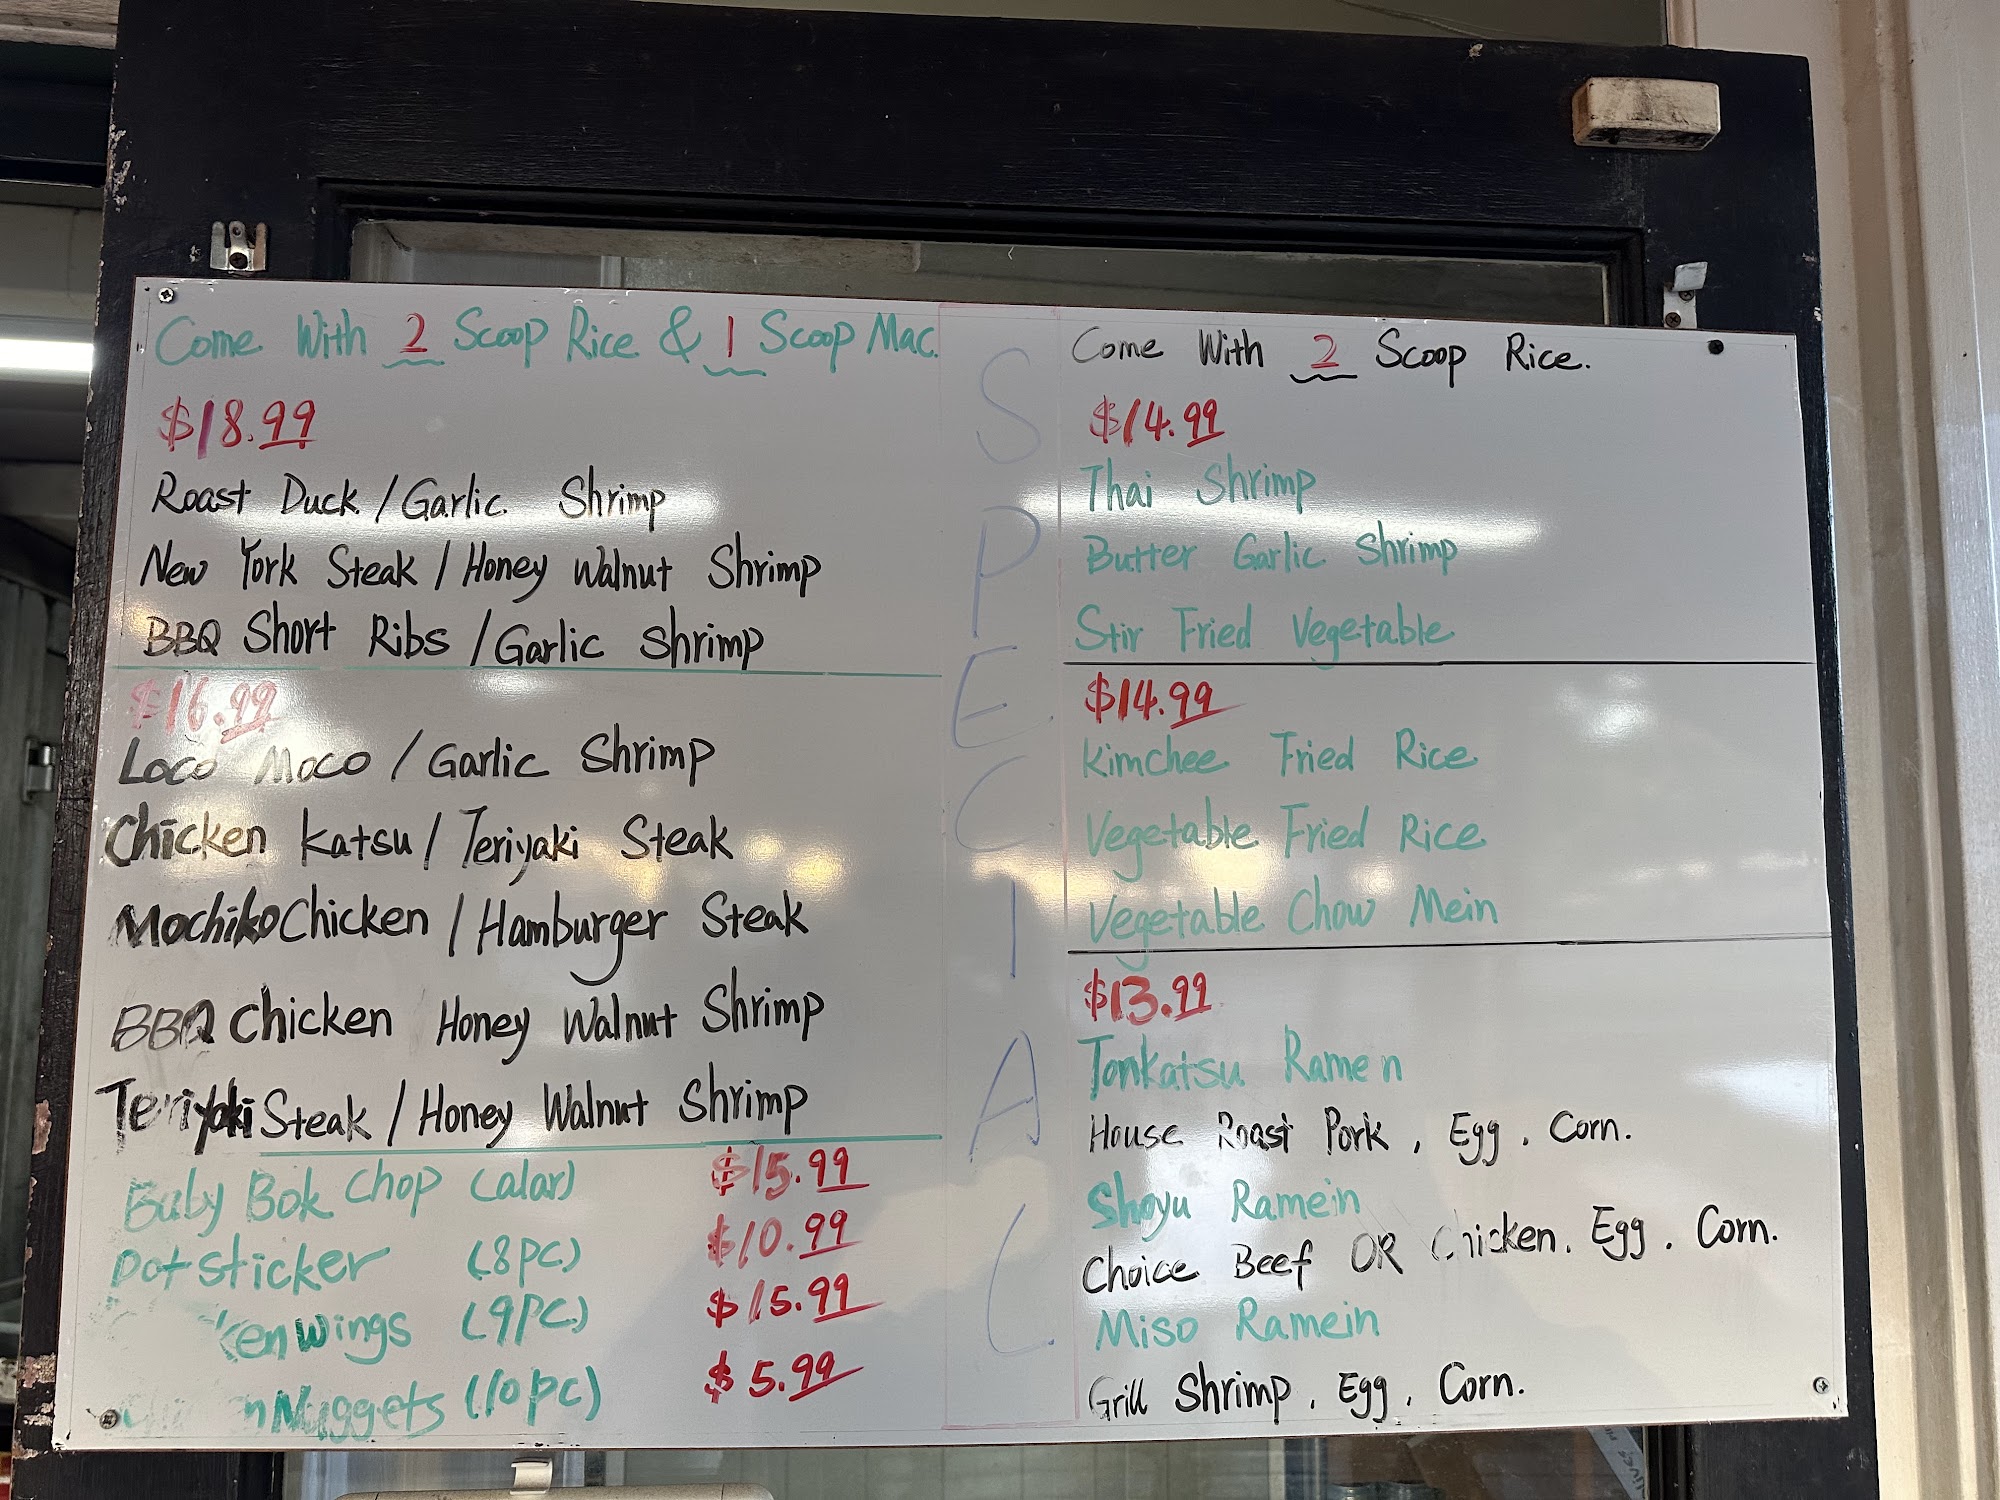 Come With 2 Scoop Rice & 1 Scoop Mac.
$18.99
Roast Duck / Garlic Shrimp
New York Steak / Honey Walnut Shrimp
BBQ Short Ribs / Garlic Shrimp
$16.99
Loco Moco / Garlic Shrimp
Chicken Katsu / Teriyaki Steak
Mochiko Chicken / Hamburger Steak
BBQ Chicken Honey Walnut Shrimp
Teriyaki Steak / Honey Walnut Shrimp
Baby Bok Chop (alar) $15.99
Potsticker (8pc) $10.99
wings (9pc) $15.99
Nuggets (10pc) $5.99
SPECIAL
Come With 2 Scoop Rice.
$14.99
Thai Shrimp
Butter Garlic Shrimp
Stir Fried Vegetable
$14.99
Kimchee Fried Rice
Vegetable Fried Rice
Vegetable Chow Mein
$13.99
Tonkatsu Ramen
House Roast Pork, Egg, Corn.
Shoyu Ramein
Choice Beef OR Chicken, Egg, Corn.
Miso Ramein
Grill Shrimp, Egg, Corn.